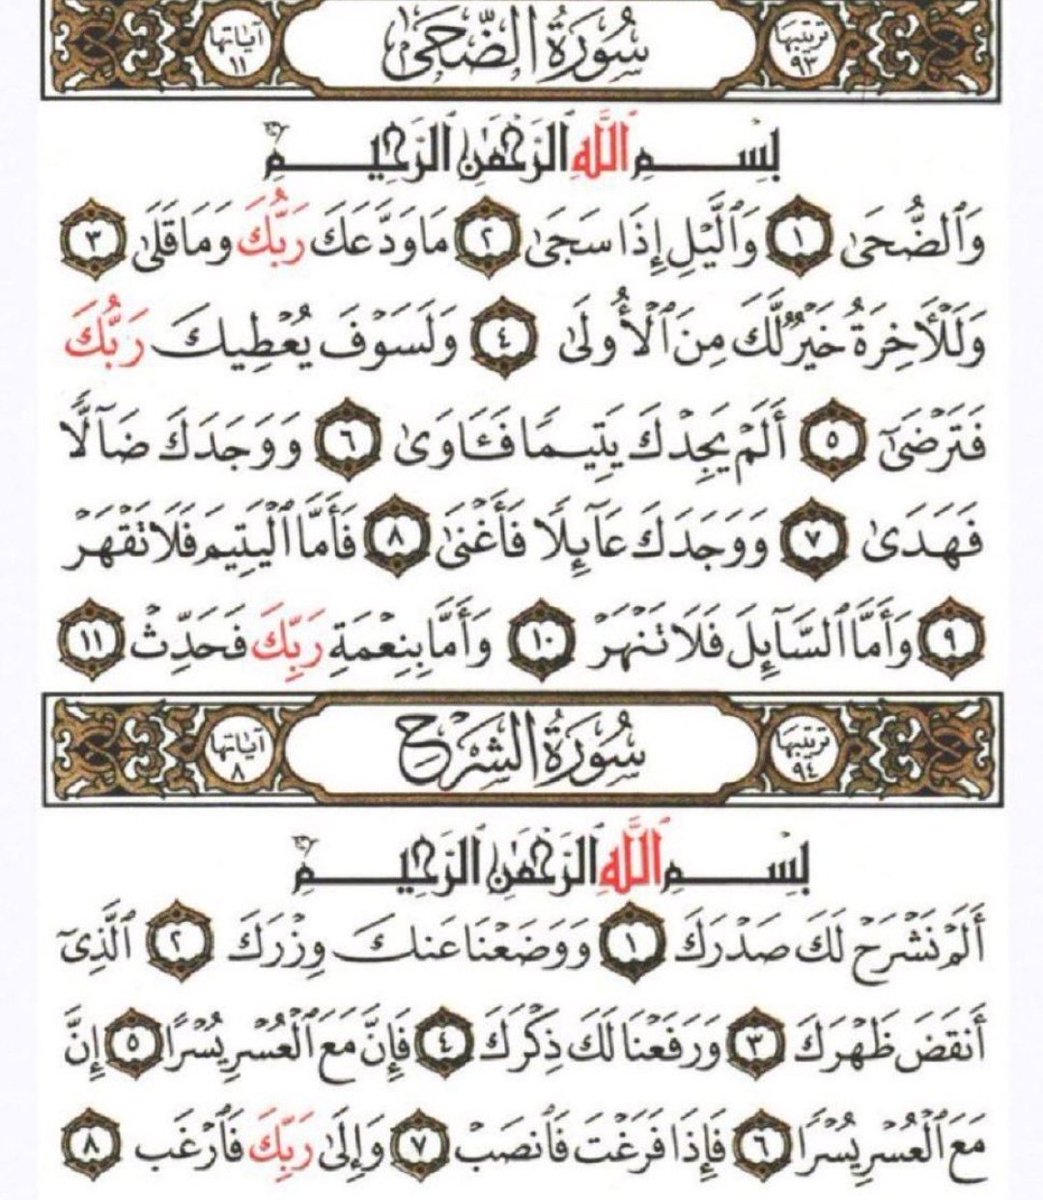 ترتيبها ٩٣ سُورَةُ الضُّحَىٰ آياتها ١١
بِسْمِ اللَّهِ الرَّحْمَٰنِ الرَّحِيمِ
وَٱلضُّحَىٰ ١ وَٱلَّيْلِ إِذَا سَجَىٰ ٢ مَا وَدَّعَكَ رَبُّكَ وَمَا قَلَىٰ ٣
وَلَلْأَخِرَةُ خَيْرٌ لَّكَ مِنَ ٱلْأُولَىٰ ٤ وَلَسَوْفَ يُعْطِيكَ رَبُّكَ
فَتَرْضَىٰٓ ٥ أَلَمْ يَجِدْكَ يَتِيمًا فَـَٔاوَىٰ ٦ وَوَجَدَكَ ضَآلًّا
فَهَدَىٰ ٧ وَوَجَدَكَ عَآئِلًا فَأَغْنَىٰ ٨ فَأَمَّا ٱلْيَتِيمَ فَلَا تَقْهَرْ
٩ وَأَمَّا ٱلسَّآئِلَ فَلَا تَنْهَرْ ١٠ وَأَمَّا بِنِعْمَةِ رَبِّكَ فَحَدِّثْ ١١
ترتيبها ٩٤ سُورَةُ الشَّرْحِ آياتها ٨
بِسْمِ اللَّهِ الرَّحْمَٰنِ الرَّحِيمِ
أَلَمْ نَشْرَحْ لَكَ صَدْرَكَ ١ وَوَضَعْنَا عَنكَ وِزْرَكَ ٢ ٱلَّذِىٓ
أَنقَضَ ظَهْرَكَ ٣ وَرَفَعْنَا لَكَ ذِكْرَكَ ٤ فَإِنَّ مَعَ ٱلْعُسْرِ يُسْرًا ٥ إِنَّ
مَعَ ٱلْعُسْرِ يُسْرًا ٦ فَإِذَا فَرَغْتَ فَٱنصَبْ ٧ وَإِلَىٰ رَبِّكَ فَٱرْغَب ٨